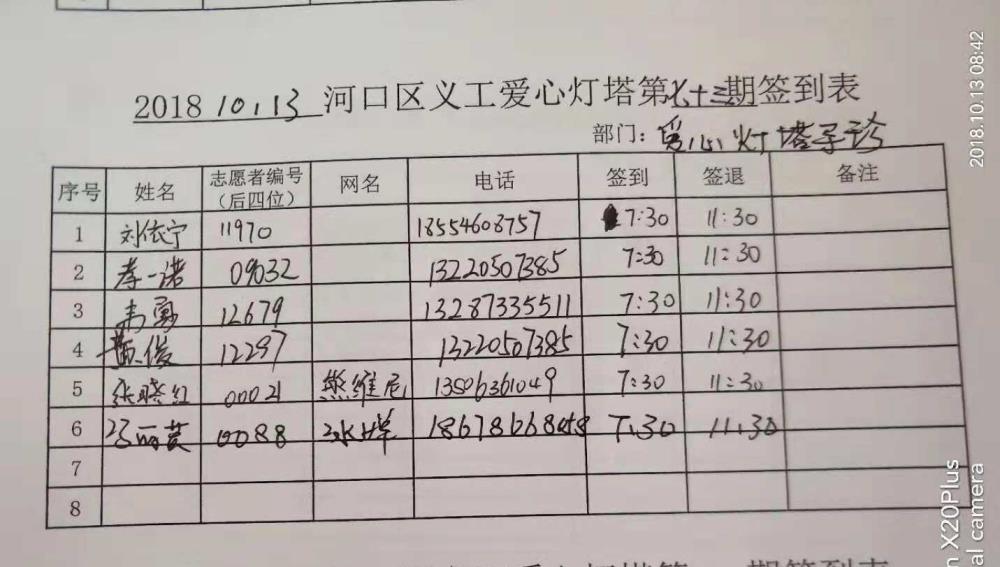 2018 10.13 河口区义工爱心灯塔第七十三期签到表
部门: 爱心灯塔导诊
序号 姓名 志愿者编号（后四位） 网名 电话 签到 签退 备注
1 刘依宁 11970 18554608757 7:30 11:30
2 李一诺 09032 13220507385 7:30 11:30
3 韦勇 12679 13287335511 7:30 11:30
4 俊 12297 13220507385 7:30 11:30
5 张晓红 00021 熊维尼 13506361049 7:30 11:30
6 冯丽 0088 冰 7:30 11:30
7
8
期签到表
2018.10.13 08:42
X20Plus
al camera